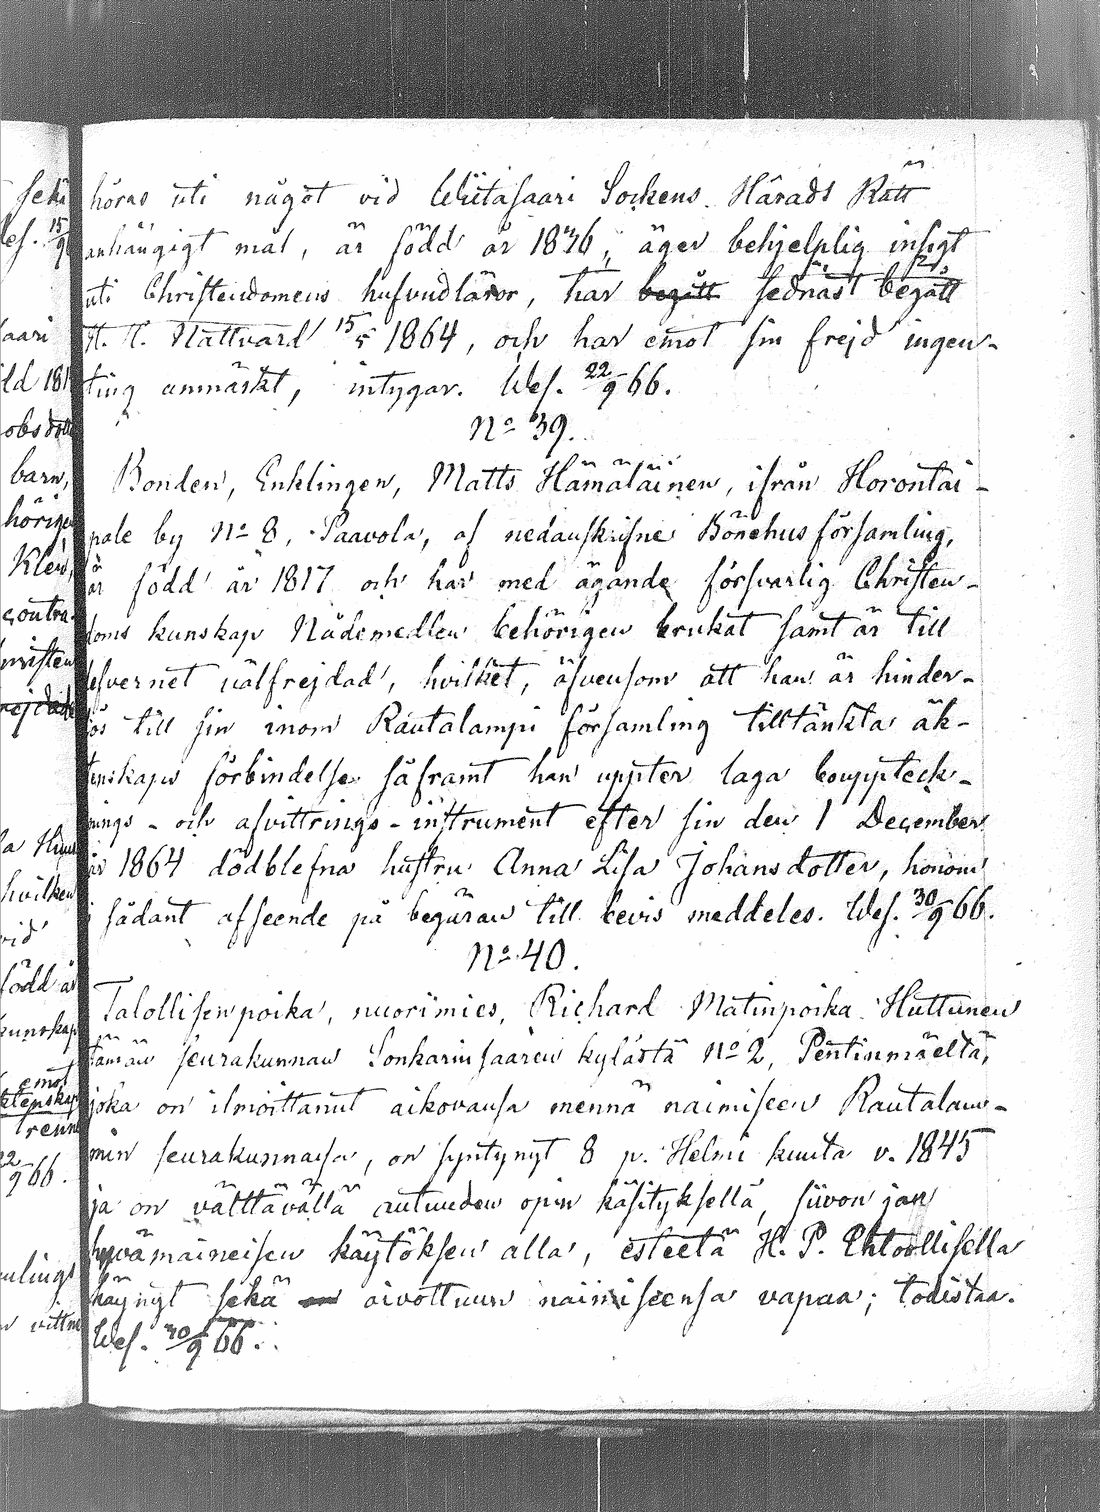 höras uti något vid Wiitasaari Sockens Härads Rätt
anhängigt mål, är född år 1836, äger behjelplig insigt
uti Christendomens hufvudläror, har begått sednast begått
H. H. Nattvard 15/5 1864, och har emot sin frejd ingen-
ting anmärkt, intygar. Wes. 22/9 66.
No 39.
Bonden, Enklingen, Matts Hämäläinen, ifrån Horontai-
pale by No 8, Paavola, af nedanskrifne Bönehusförsamling,
är född år 1817 och har med ägande försvarlig Christen-
doms kunskap Nådemedlen behörigen brukat samt är till
lefvernet välfrejdad, hvilket, äfvensom att han är hinder-
lös till sin inom Rautalampi församling tilltänkta äk-
tenskaps förbindelse såframt han uppter laga bouppteck-
nings- och afvittrings-instrument efter sin den 1 December
år 1864 dödblefna hustru Anna Lisa Johansdotter, honom
i sådant afseende på begäran till bevis meddeles. Wes. 30/9 66.
No 40.
Talollisenpoika, nuorimies, Richard Matinpoika Huttunen
tämän seurakunnan Sonkarinsaaren kylästä No 2, Pentinmäeltä,
joka on ilmoittanut aikovansa mennä naimiseen Rautalam-
min seurakunnassa, on syntynyt 8 p. Helmi kuuta v. 1845
ja on välttävällä autuuden opin käsityksellä, siivon jan
hyvämaineisen käytöksen alla, esteetä H. P. Ehtoollisella
käynyt sekä on aivottuun naimiseensa vapaa; todistaa.
Wes. 30/9 66.